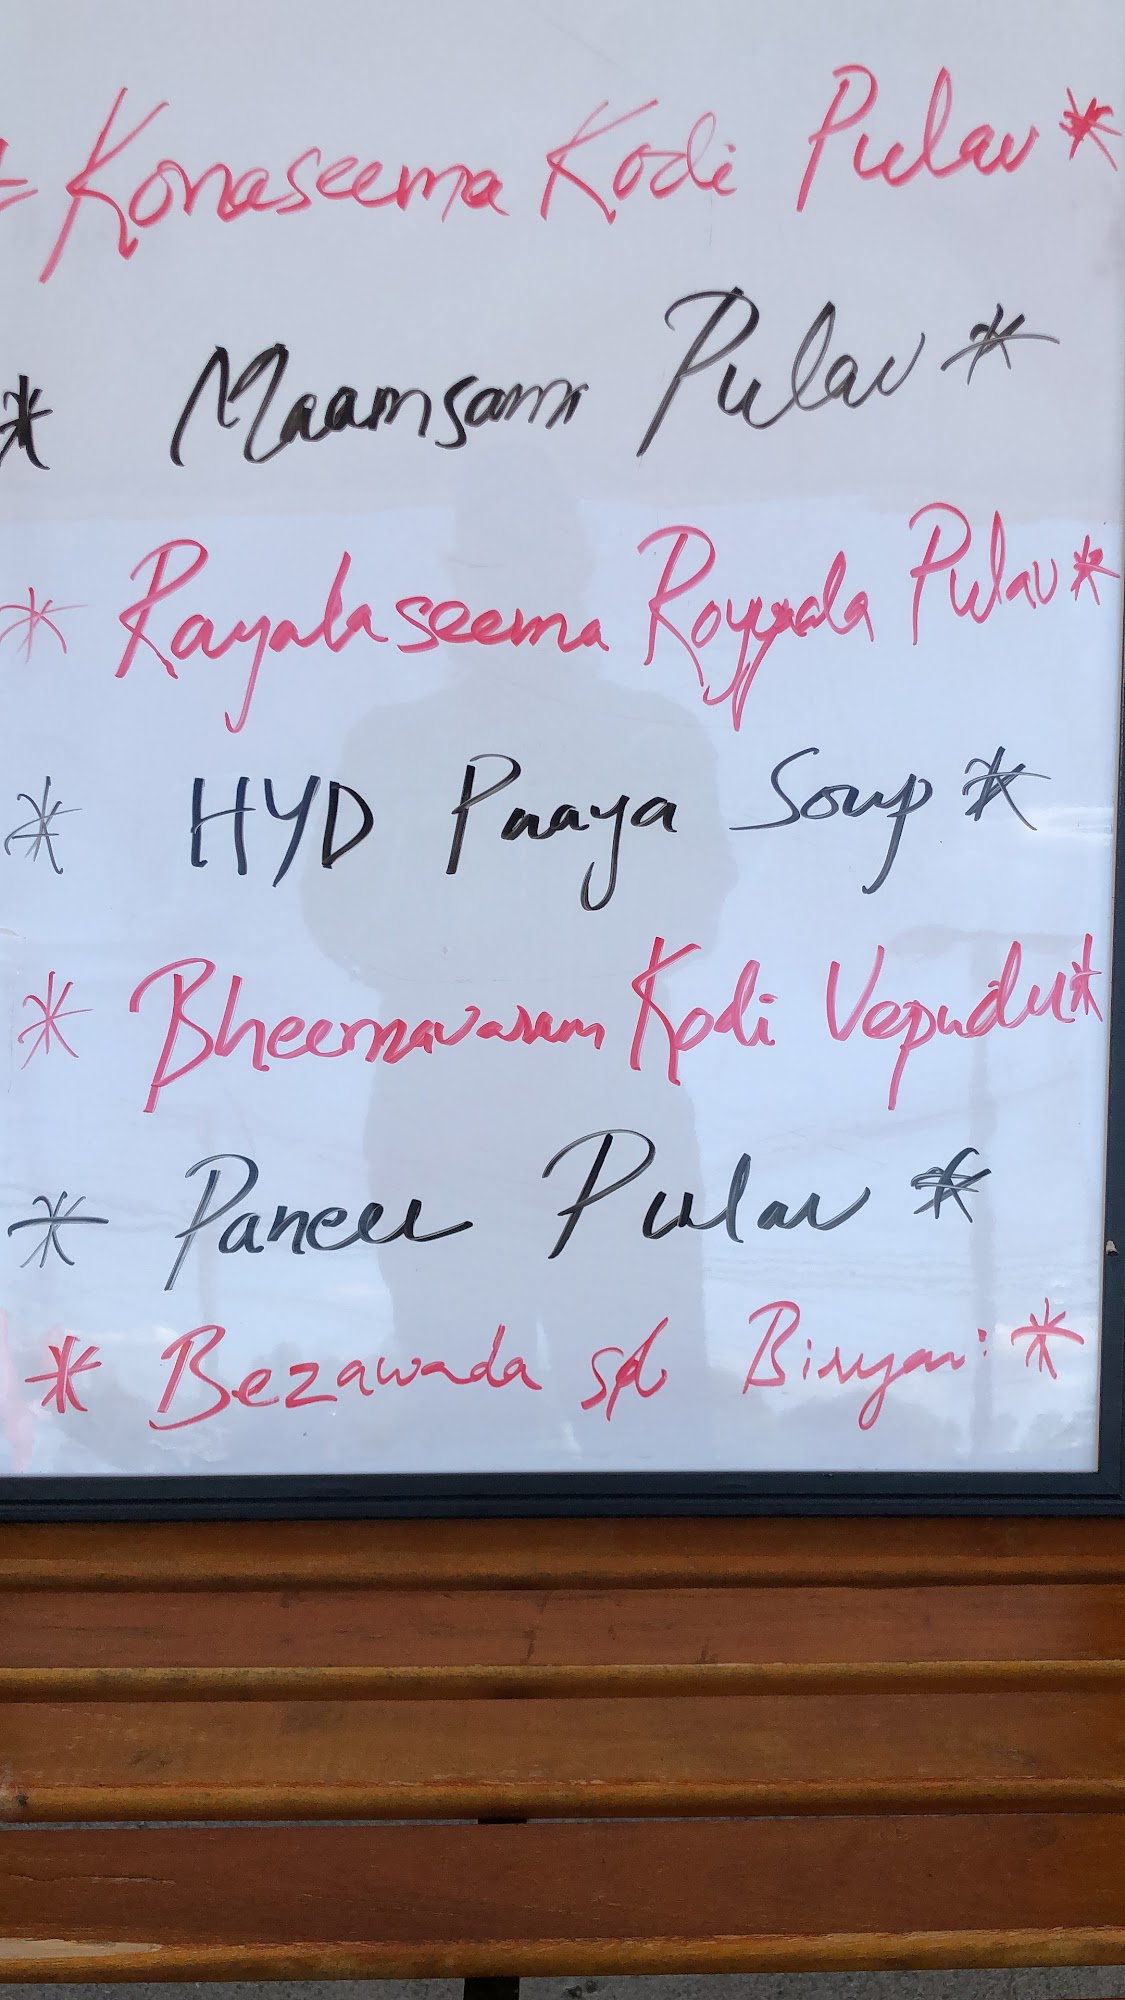 * Konaseema Kodi Pulav *
* Maamsam Pulav *
* Rayalaseema Royyala Pulav *
* HYD Paaya Soup *
* Bheemavaram Kodi Vepudu *
* Paneer Pulav *
* Bezawada spl Biryani *